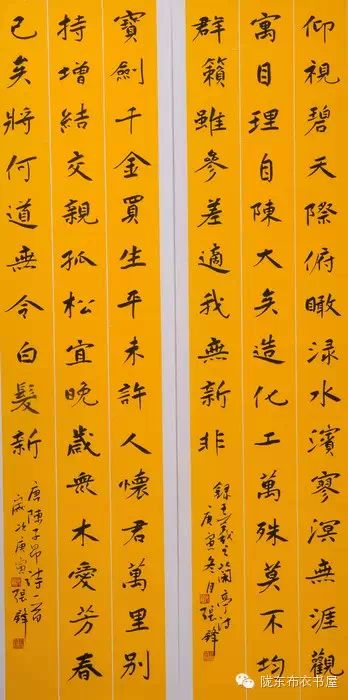 仰視碧天際俯瞰渌水濱寥溟無涯觀
寓目理自陳大矣造化工萬殊莫不均
群籟雖參差適我無新非
錄王羲之蘭亭詩
庚寅冬月張鋒
寶劍千金買生平未許人懷君萬里別
持增結交親孤松宜晚歲衆木愛芳春
已矣將何道無令白髮新
唐陳子昂詩一首
歲次庚寅張鋒
陇东布衣书屋